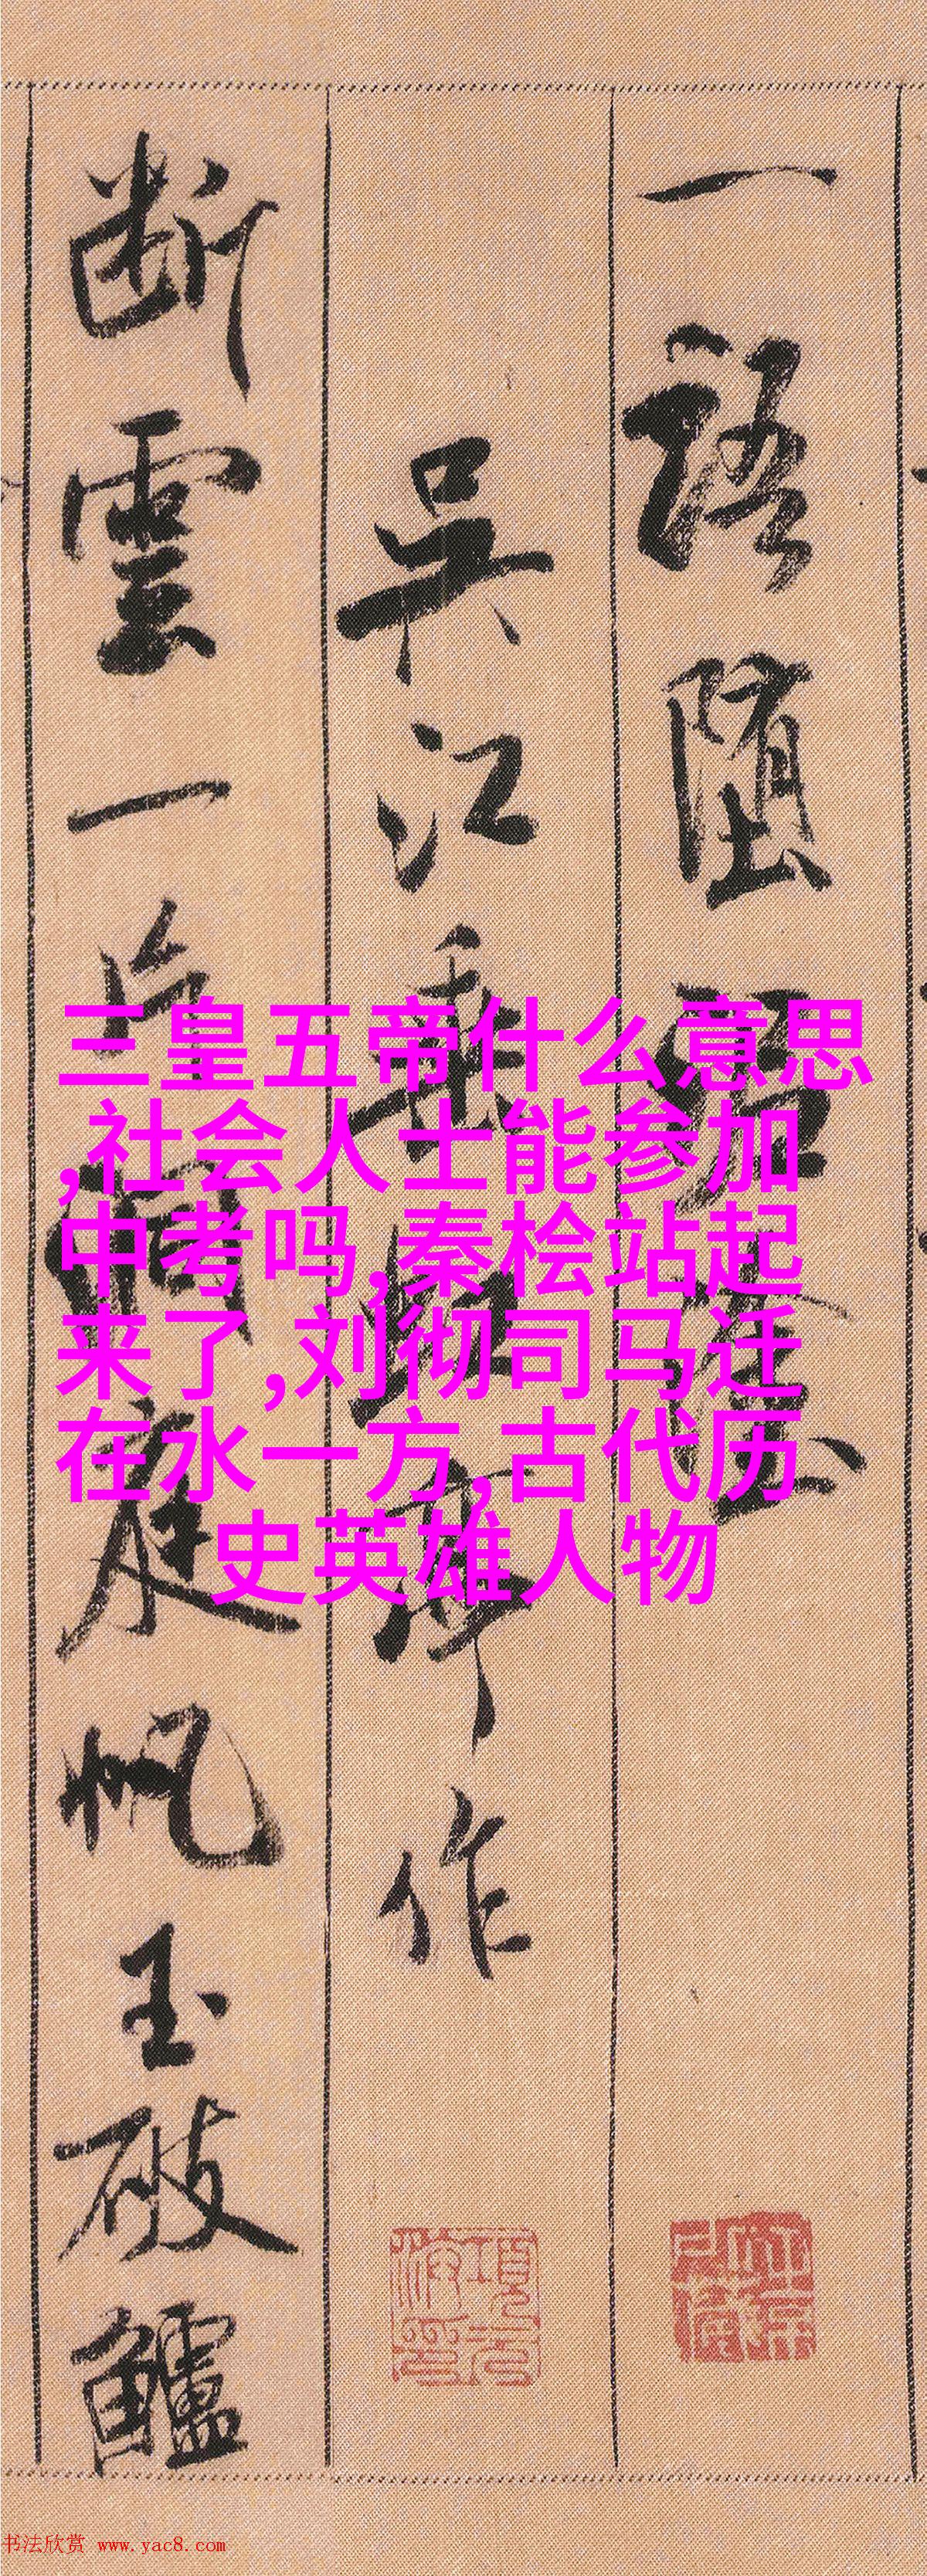 一語墮泥塗
吳江垂虹亭作
断雲一片洞庭帆玉破鱸
三皇五帝什么意思
,社会人士能参加
中考吗,秦桧站起
来了,刘彻司马迁
在水一方,古代历
史英雄人物
书法欣赏 www.yac8.com